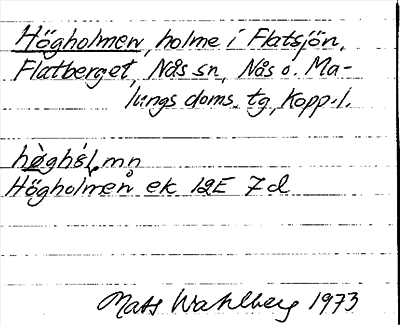 Högholmen, holme i Flatsjön,
Flatberget, Nås sn, Nås o. Ma-
lungs doms. tg, Kopp. l.
Högholmen ek 12E 7d
Mats Wahlberg 1973